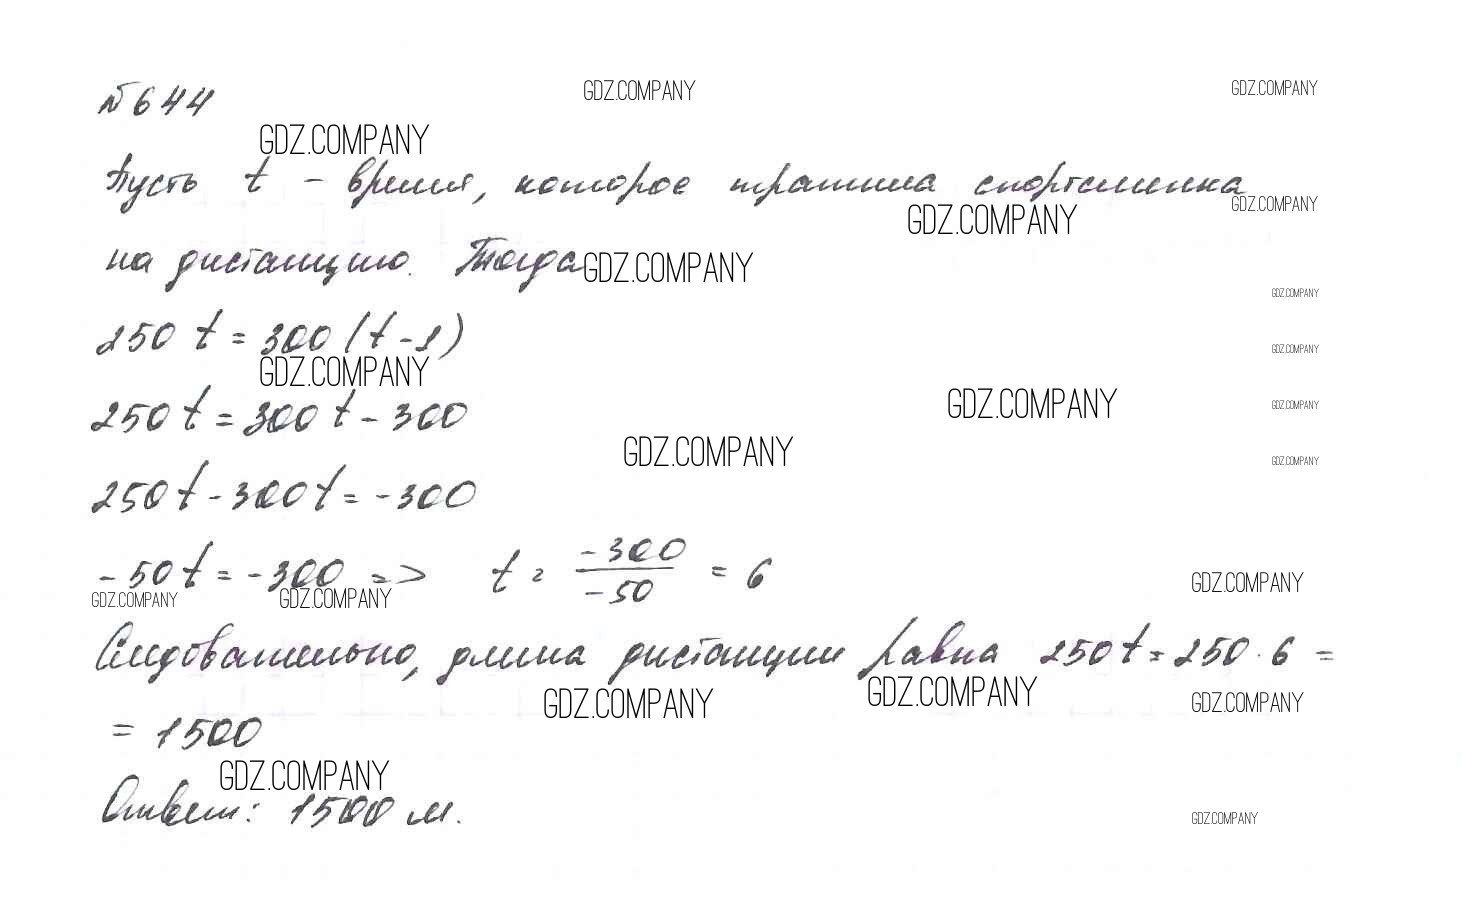 №644
GDZ.COMPANY GDZ.COMPANY
GDZ.COMPANY
Пусть t – время, которое тратила спортсменка
GDZ.COMPANY GDZ.COMPANY
на дистанцию. Тогда
GDZ.COMPANY
GDZ.COMPANY
250 t = 300 (t - 1)
GDZ.COMPANY
GDZ.COMPANY
250 t = 300 t - 300
GDZ.COMPANY
GDZ.COMPANY
GDZ.COMPANY
GDZ.COMPANY
250 t - 300 t = -300
-50 t = -300 => t = -300/-50 = 6
GDZ.COMPANY GDZ.COMPANY GDZ.COMPANY
Следовательно, длина дистанции равна 250 t = 250 · 6 =
GDZ.COMPANY GDZ.COMPANY GDZ.COMPANY
= 1500
GDZ.COMPANY
Ответ: 1500 м.
GDZ.COMPANY